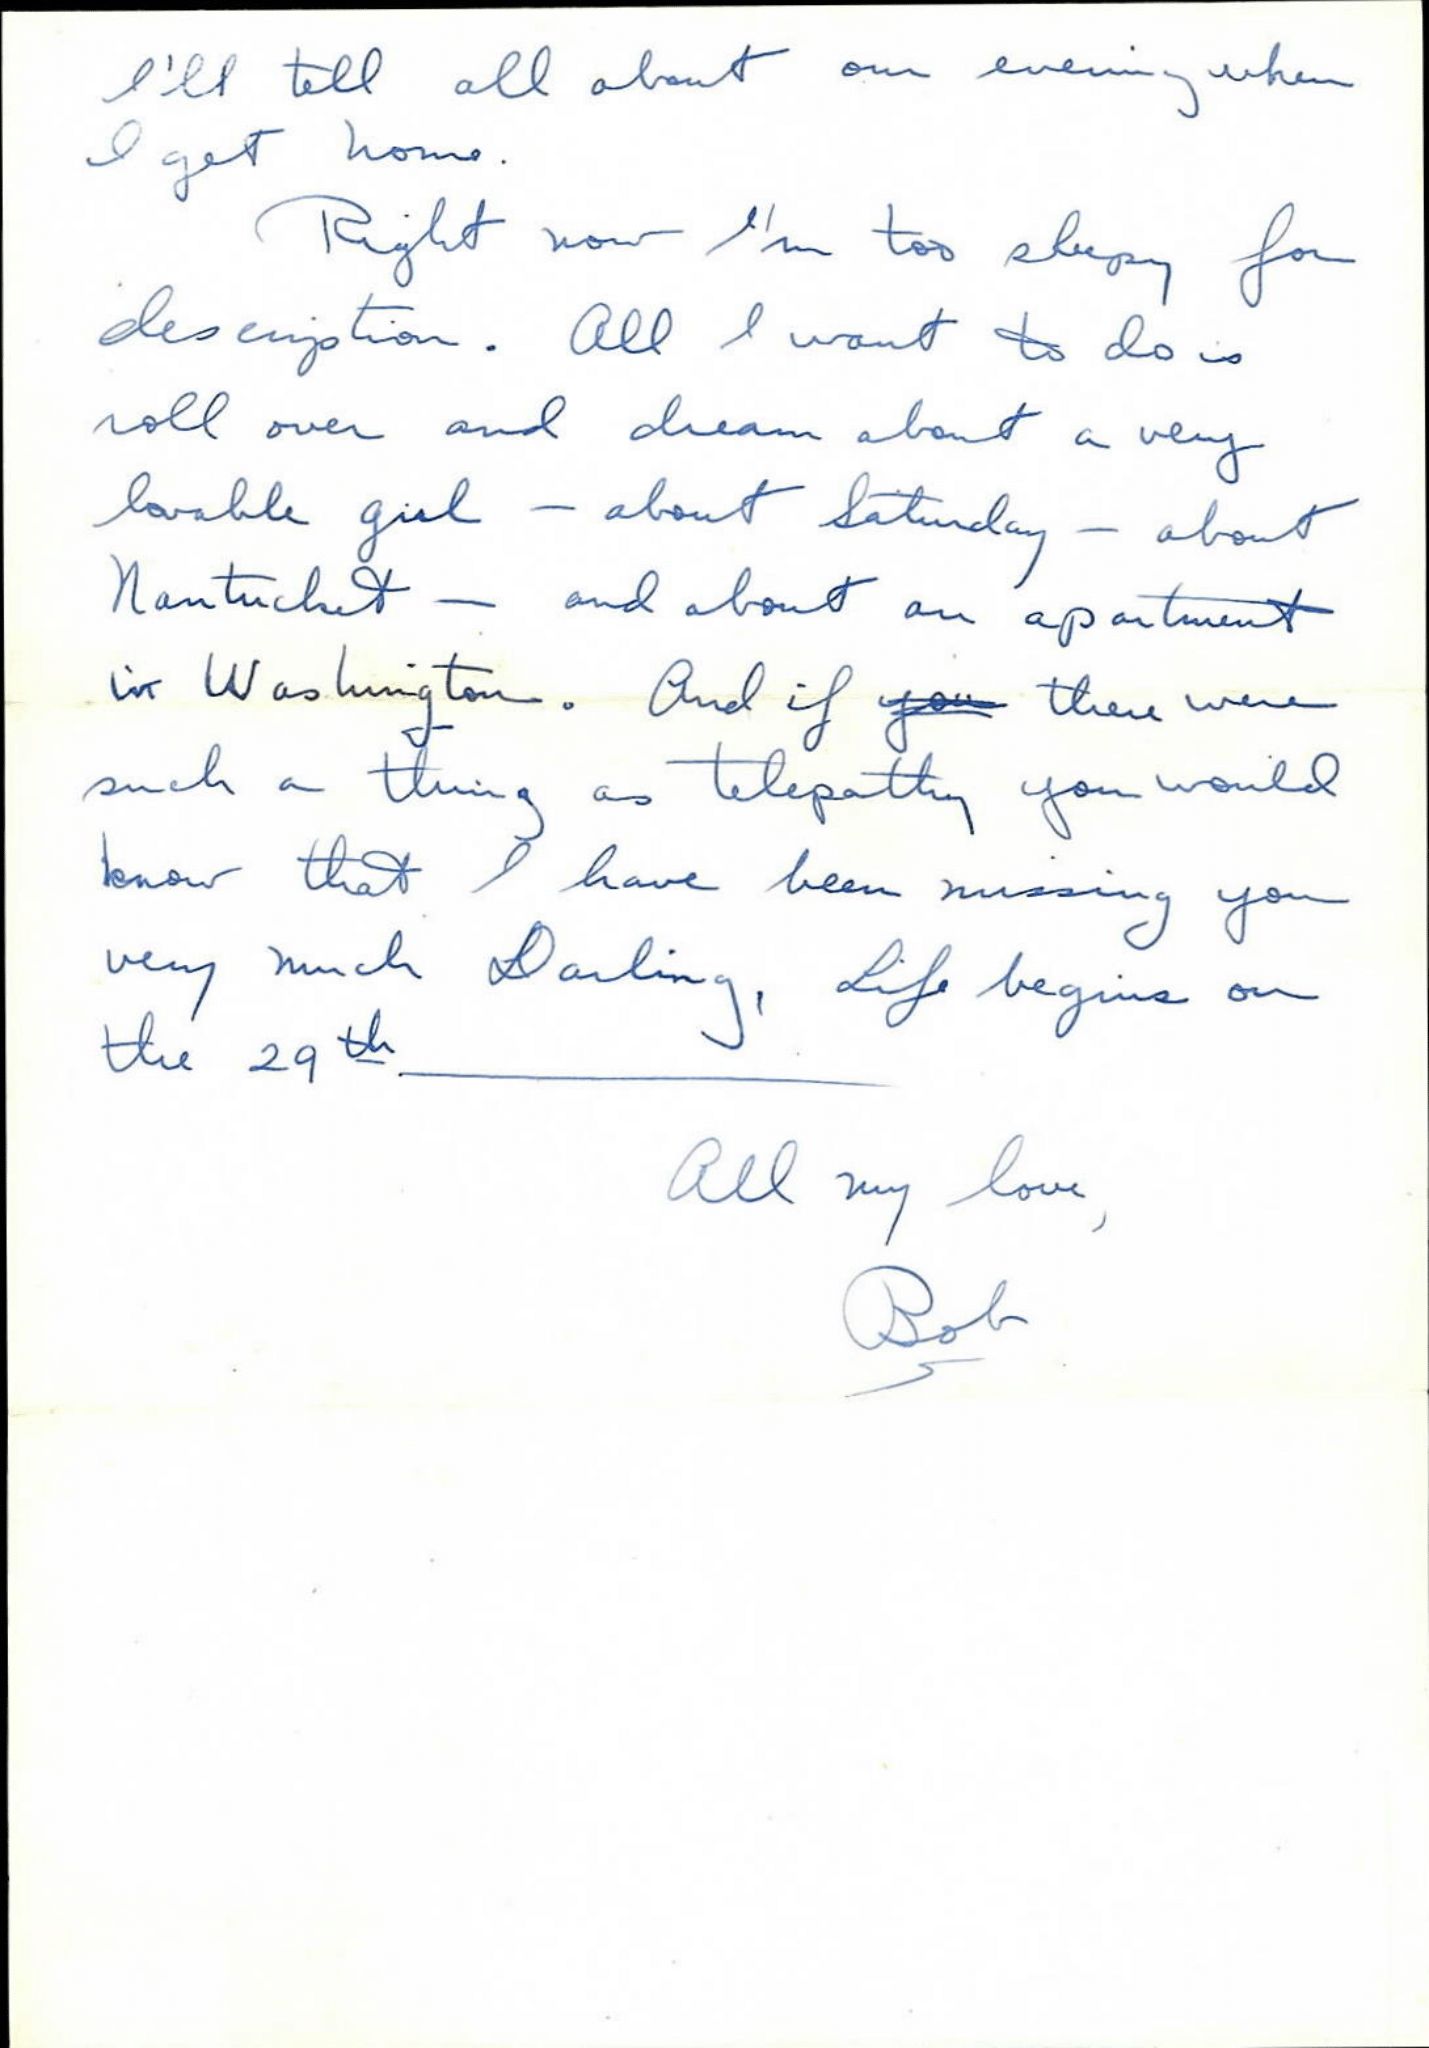 I'll tell all about our evening when
I get home.
Right now I'm too sleepy for
description. All I want to do is
roll over and dream about a very
lovable girl – about Saturday – about
Nantucket – and about an apartment
in Washington. And if you there were
such a thing as telepathy you would
know that I have been missing you
very much Darling, Life begins on
the 29th
All my love,
Bob